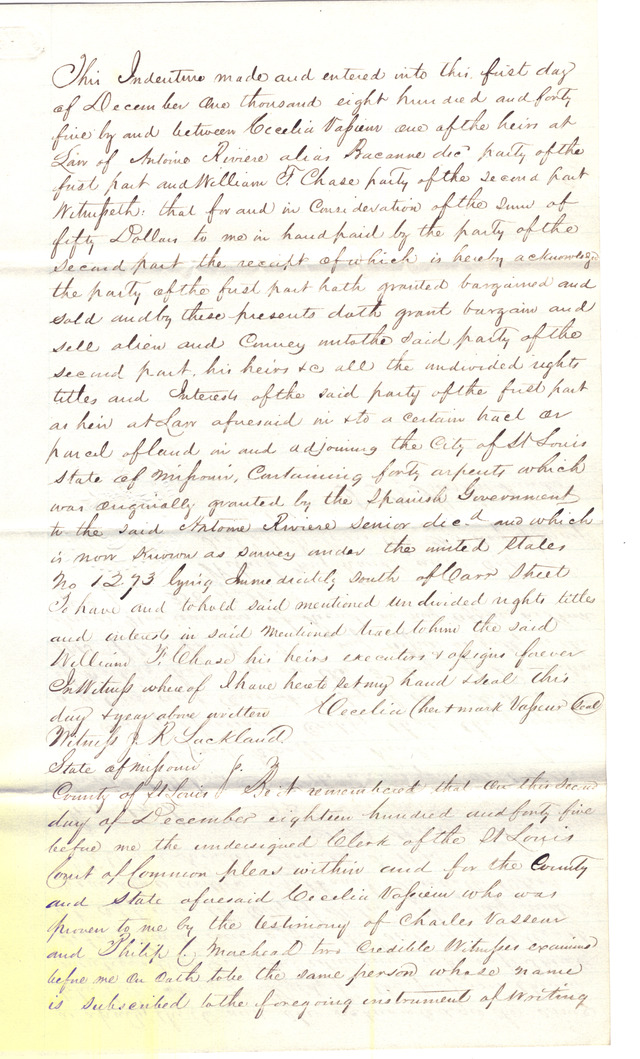 This Indenture made and entered into this first day
of December One thousand eight hundred and forty
five by and between Cecelia Vasseur one of the heirs at
Law of Antoine Riviere alias Bacanne decd party of the
first part and William F. Chase party of the second part
Witnesseth: that for and in Consideration of the sum of
fifty Dollars to me in hand paid by the party of the
second part the receipt of which is hereby acknowledge
the party of the first part hath granted bargained and
sold and by these presents doth grant bargain and
sell alien and Convey unto the said party of the
second part, his heirs &c all the undivided rights
titles and Interests of the said party of the first part
as heir at Law aforesaid in & to a certain tract or
parcel of land in and adjoining the City of St Louis
State of Missouri, Containing forty arpents which
was originally granted by the Spanish Government
to the said Antoine Riviere senior decd and which
is now known as survey under the united States
No 1273 lying Immediately south of Carr Street
To have and to hold said mentioned undivided rights titles
and interests in said Mentioned tract to him the said
William F. Chase his heirs executors & assigns forever
In Witness whereof I have hereto set my hand & seal this
day & year above written Cecelia (her x mark Vasseur Seal
Witness J. R Lackland
State of Missouri
County of St Louis Be it remembered that on this second
day of December eighteen hundred and forty five
before me the undersigned Clerk of the St Louis
Court of Common pleas within and for the County
and State aforesaid Cecelia Vasseur who was
proven to me by the testimony of Charles Vasseur
and Philip two Credible Witnesses examined
before me on Oath to be the same person whose name
is subscribed to the foregoing instrument of Writing